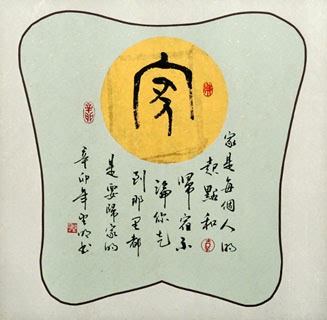 家
家是每個人的
起點和
歸宿不
論你走
到那里都
是要歸家的
辛卯年
辛卯